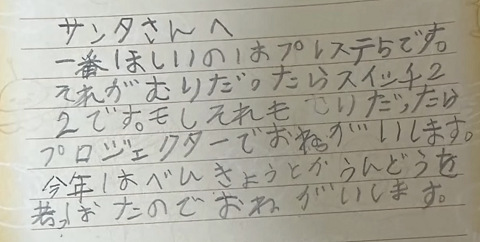 サンタさんへ
一番ほしいのはプレステ5です。
それがむりだったらスイッチ2
2です。もしそれもむりだったら
プロジェクターでおねがいします。
今年はべんきょうとかうんどうを
ばたのでおねがいします。